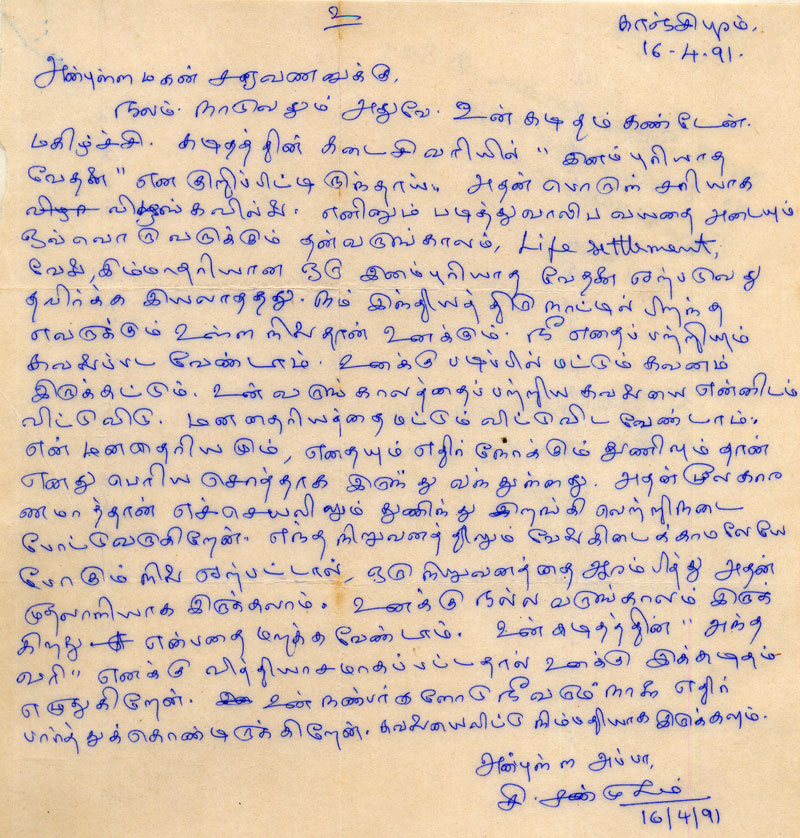 உ
காஞ்சிபுரம்,
16-4-91.
அன்புள்ள மகன் சரவணனுக்கு,
நலம். நாடுவதும் அதுவே. உன் கடிதம் கண்டேன்.
மகிழ்ச்சி. கடிதத்தின் கடைசி வரியில் " இனம்புரியாத
வேதனை" என குறிப்பிட்டிருந்தாய். அதன் பொருள் சரியாக
விளங்கவில்லை. எனினும் படித்து வாலிப வயதை அடையும்
ஒவ்வொருவருக்கும் தன் வருங்காலம், Life settlement,
வேலை, இம்மாதிரியான ஒரு இனம்புரியாத வேதனை ஏற்படுவது
தவிர்க்க இயலாததது. நம் இந்தியத் திரு நாட்டில் பிறந்த
எவருக்கும் உள்ள நிலைதான் உனக்கும். நீ எதைப்பற்றியும்
கவலைப்பட வேண்டாம். உனக்கு படிப்பில் மட்டும் கவனம்
இருக்கட்டும். உன் வருங்காலத்தைப்பற்றிய கவலையை என்னிடம்
விட்டுவிடு. மனதைரியத்தை மட்டும் விட்டுவிட வேண்டாம்.
என் மனதைரியமும், எதையும் எதிர் நோக்கும் துணிவும் தான்
எனது பெரிய சொத்தாக இருந்து வந்துள்ளது. அதன் மூலகார
ணமாத்தான் எச்செயலிலும் துணிந்து இறங்கி வெற்றிநடை
போட்டுவருகிறேன். எந்த நிறுவனத்திலும் வேலைகிடைக்காமலேயே
போகும் நிலை ஏற்பட்டால், ஒரு நிறுவனத்தை ஆரம்பித்து அதன்
முதலாளியாக இருக்கலாம். உனக்கு நல்ல வருங்காலம் இருக்
கிறது என்பதை மறக்க வேண்டாம். உன் கடிதத்தின் " அந்த
வரி" எனக்கு வித்தியாசமாகப்பட்டதால் உனக்கு இக்கடிதம்
எழுதுகிறேன். உன் நண்பர்களோடு நீ வரும் நாளை எதிர்
பார்த்துக்கொண்டிருக்கிறேன். கவலையைவிட்டு நிம்மதியாக இருக்கவும்.
அன்புள்ள அப்பா,
சி. சண்முகம்
16/4/91